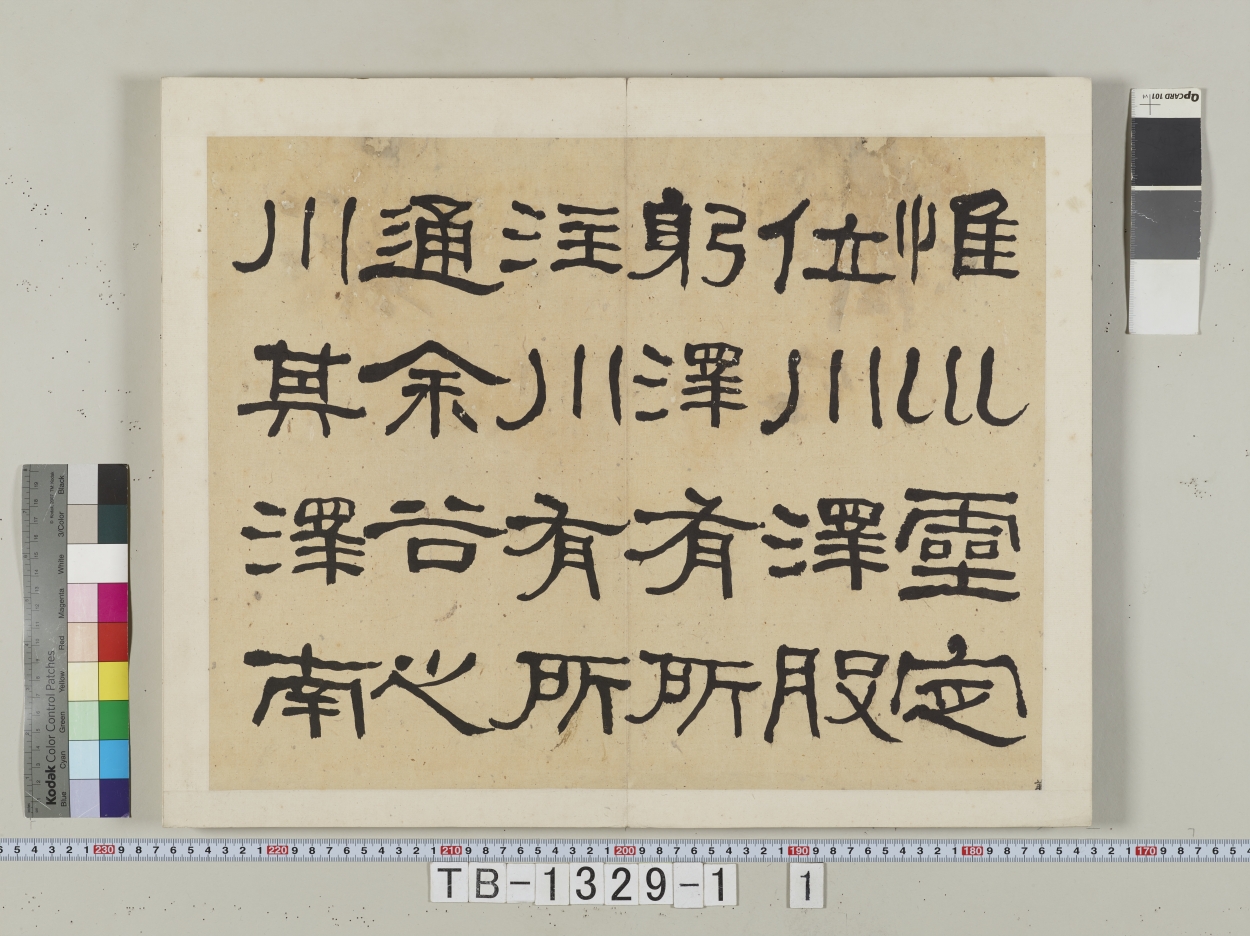 惟巛靈定
位川澤股
躬澤有所
注川有所
通余谷之
川其澤南
QPCARD 101
Kodak Color Control Patches
Blue Cyan Green Yellow Red Magenta White 3/Color Black
TB-1329-1 1